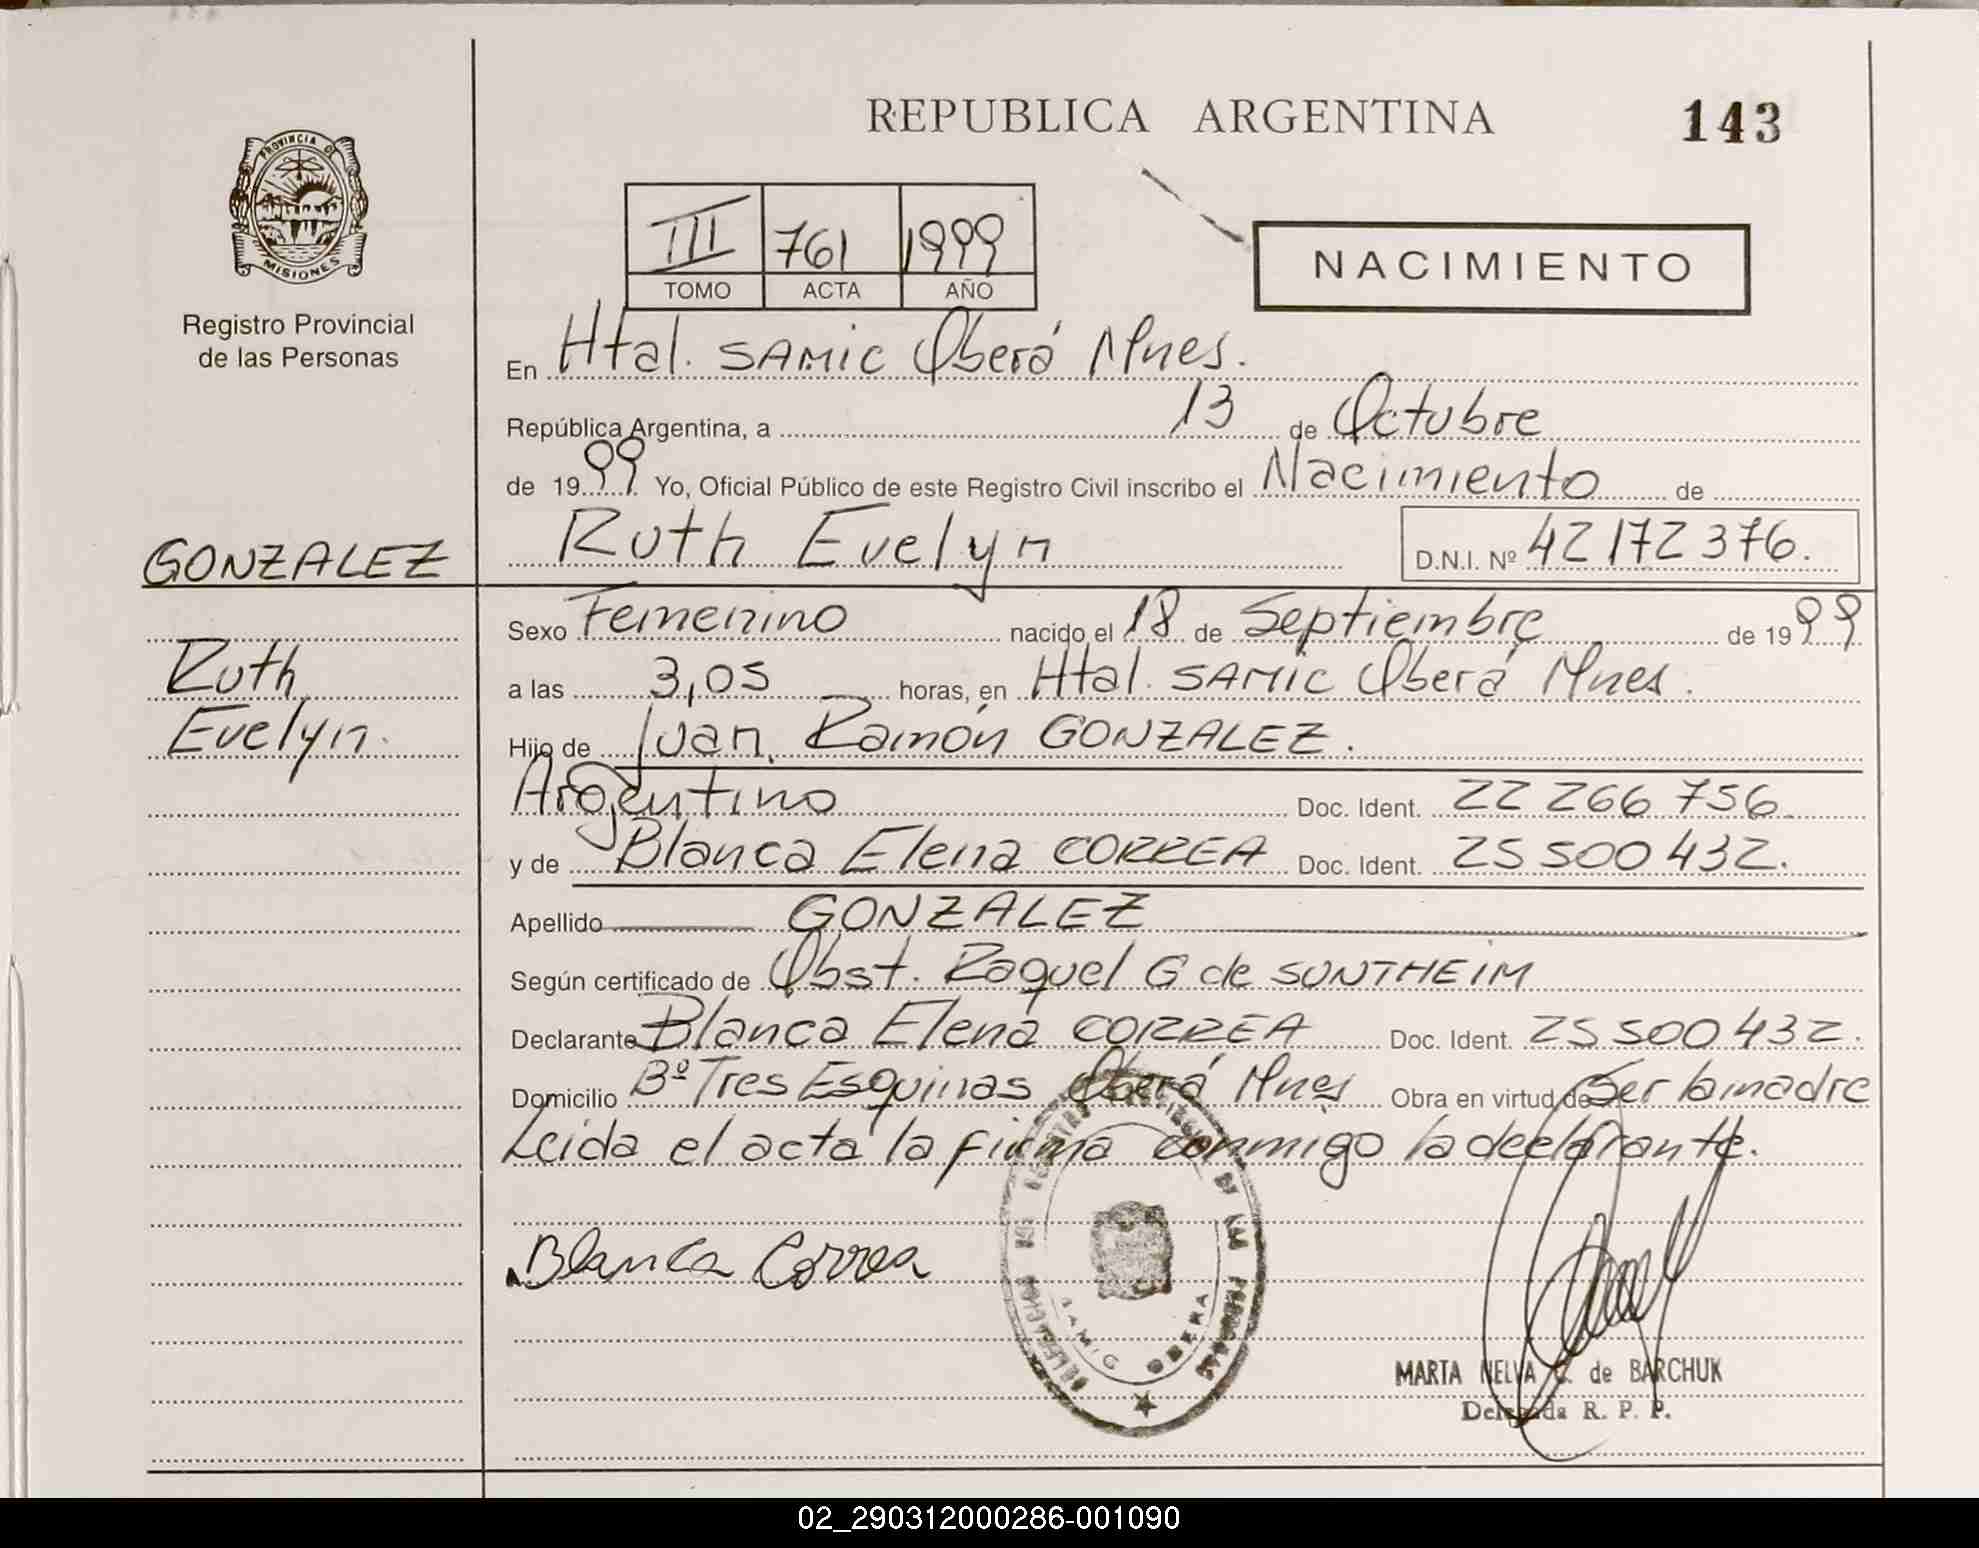 REPUBLICA ARGENTINA
143
PROVINCIA DE
MISIONES
Registro Provincial
de las Personas
III 761 1999
TOMO ACTA AÑO
NACIMIENTO
En Htal. SAMIC Oberá Mnes.
República Argentina, a 13 de Octubre
de 1999 Yo, Oficial Público de este Registro Civil inscribo el Nacimiento de
Ruth Evelyn D.N.I. Nº 42172376.
GONZALEZ
Ruth
Evelyn.
Sexo Femenino nacido el 18 de Septiembre de 1999
a las 3,05 horas, en Htal. SAMIC Oberá Mnes.
Hijo de Juan Ramón GONZALEZ.
Argentino Doc. Ident. 22 266 756.
y de Blanca Elena CORREA Doc. Ident. 25 500 432.
Apellido GONZALEZ
Según certificado de Obst. Raquel G de SUNTHEIM
Declarante Blanca Elena CORREA Doc. Ident. 25 500 432.
Domicilio Bº Tres Esquinas Oberá Mnes Obra en virtud de Ser la madre
Leida el acta la firma conmigo la declarante.
Blanca Correa
DELEGACION DEL REGISTRO PROVINCIAL DE LAS PERSONAS
SAMIC OBERA
MARTA NELVA C. de BARCHUK
Delegada R. P. P.
02_290312000286-001090